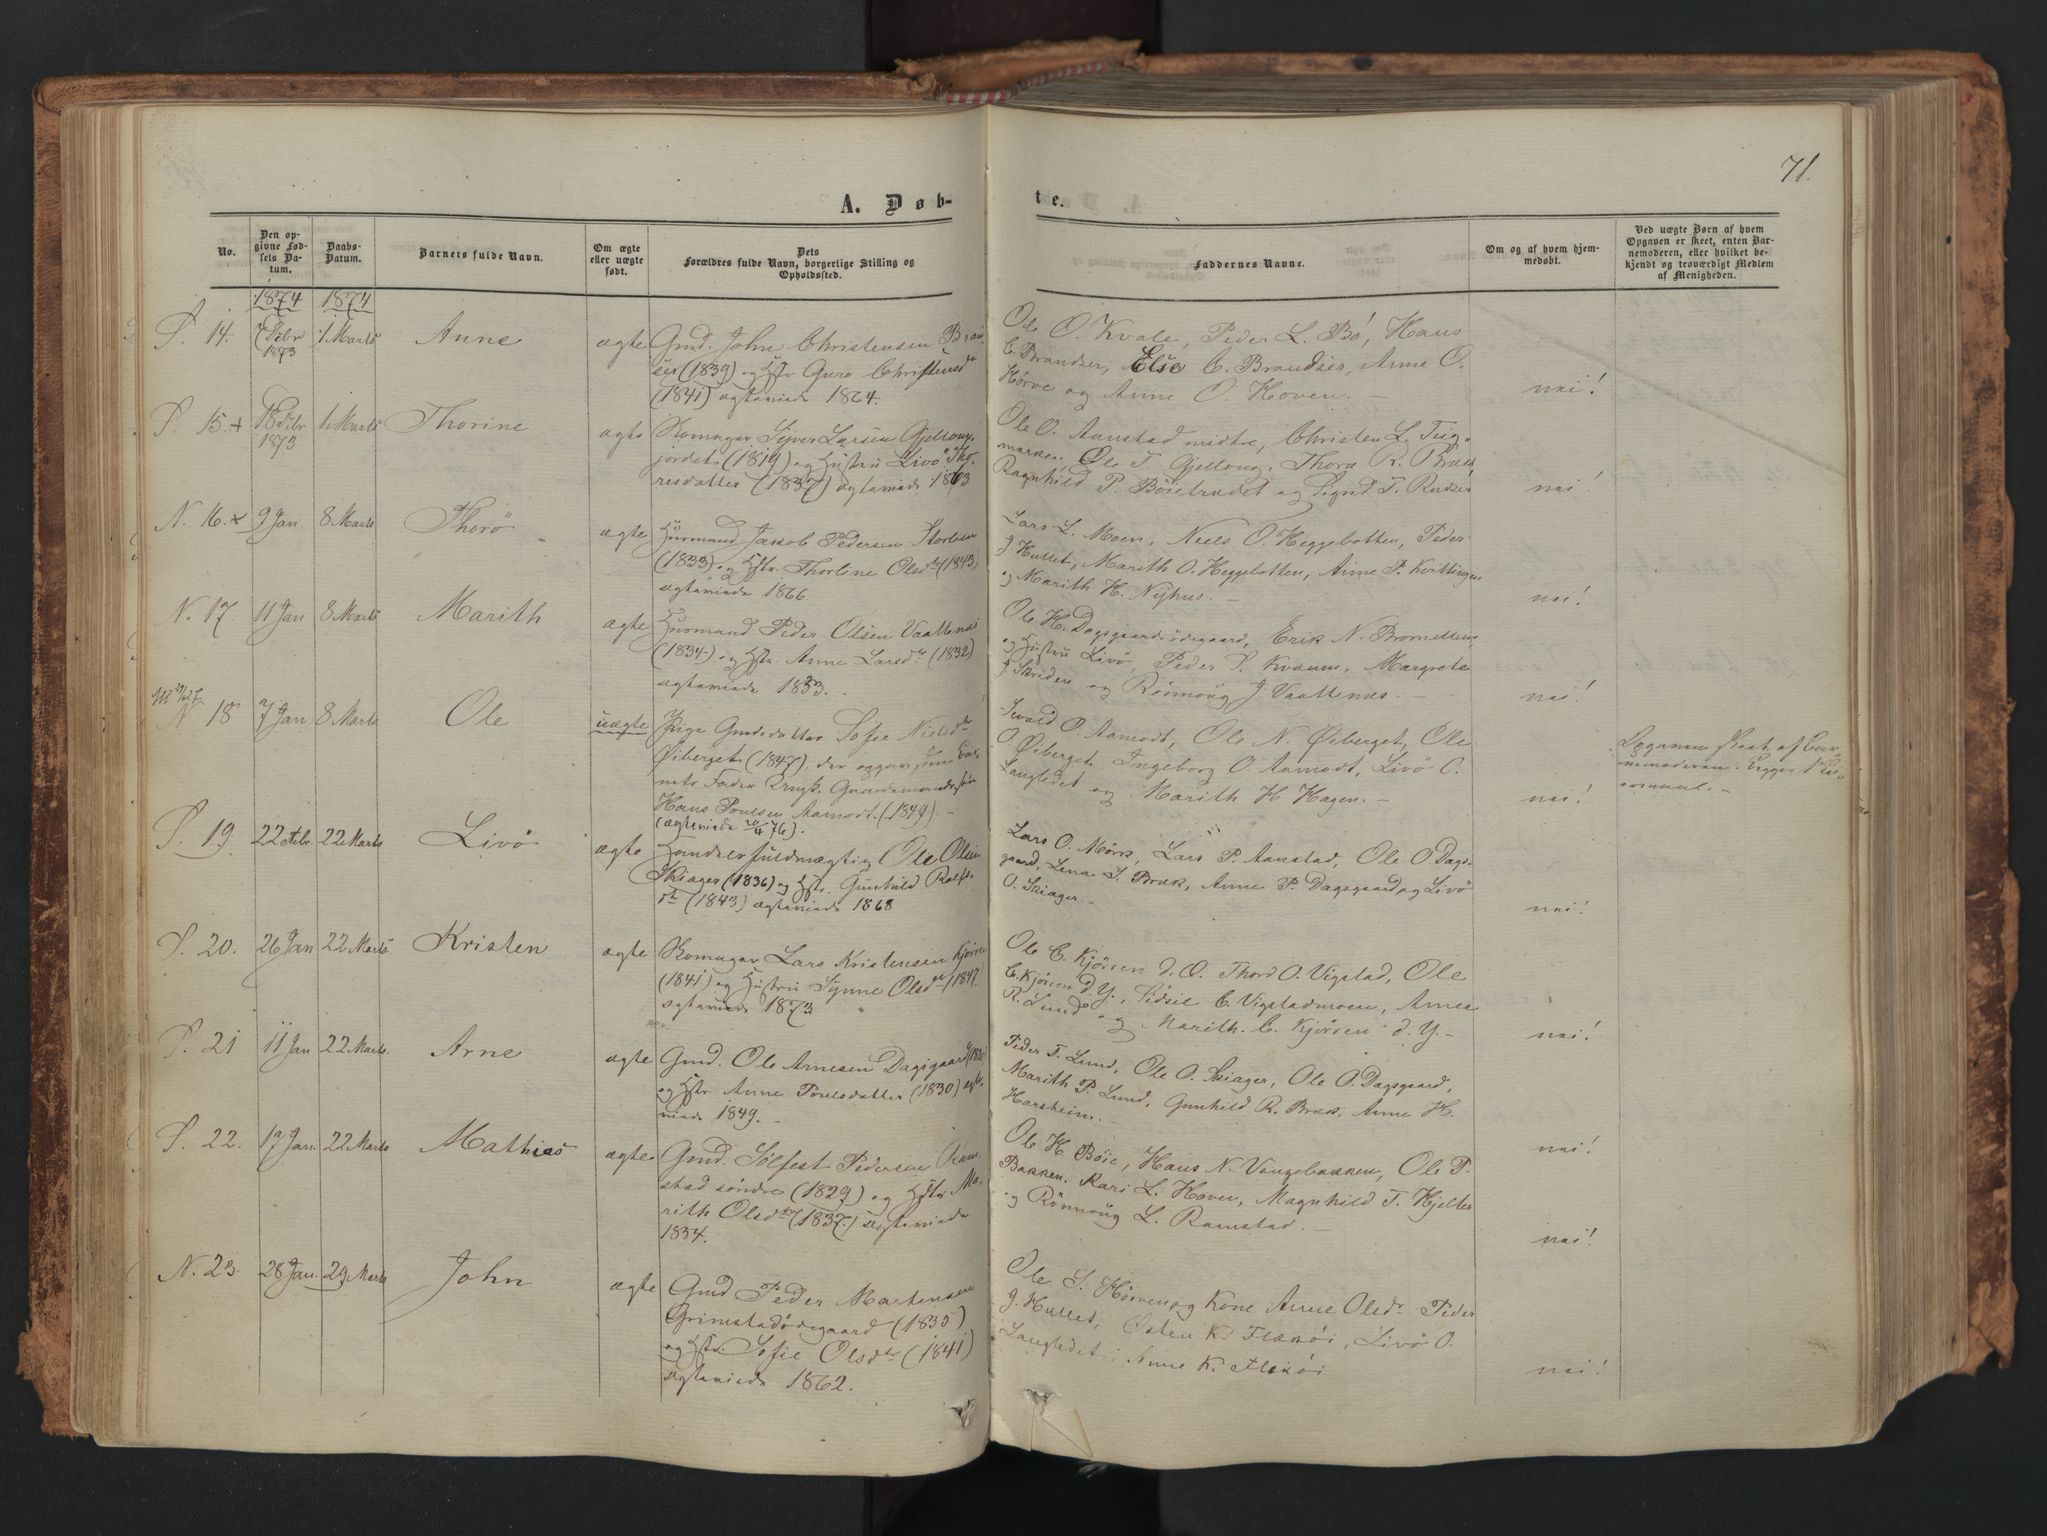 71.
A. Døb-
te.
No.
Den op-
givne Fød-
sels Da-
tum.
Daabs-
Datum.
Barnets fulde Navn.
Om ægte
eller uægte
født.
Dets
Forældres fulde Navn, borgerlige Stilling og
Opholdssted.
Faddernes Navne.
Om og af hvem hjem-
medøbt.
Ved uægte Børn af hvem
Opgaven er skeet, enten Bar-
nemoderen, eller hvilket be-
kjendt og troværdigt Medlem
af Menigheden.
1874 1874
S. 14. 1873 1 Marts Anne ægte
Gmd. John Christensen Brand
ser (1839) og Hstr Guro Christensd
(1841) ægteviede 1864.
Ole O. Kvale, Peder L. Bö, Hans
C. Brandser, Else C. Brandser, Anne O.
Hörve og Anne O. Hoven. -
nei!
S. 15. + 18 Dcbr 1873 1 Marts Thorine ægte
Syver Larsen Gjellong-
jordet (1819) og Hustru Livö Tho-
resdatter (1837) ægteviede 1863
Ole O. Aanstad midtre, Christen L. Teig-
marken, Ole T. Gjellong, Thora R. Bræk,
Ragnhild P. Böietrædet og Sigrid T. Rudser
nei!
N. 16. + 9 Jan 8 Marts Thorö ægte
Husmand Jakob Pedersen Storlien
(1833) og Hstr. Thorline Olsdtr (1843)
ægteviede 1866.
Lars L. Moen, Niels O. Heggebotten, Peder
J. Hullet, Marith O. Heggebotten, Anne P. Kvittingen
og Marith H. Nyhus. -
nei!
N. 17 11 Jan 8 Marts Marith ægte
Husmand Peder Olsen Vaattenæs
(1834) og Hstr. Anne Larsdtr (1832)
ægteviede 1853.
Ole H. Dagsgaardsödegaard, Erik N.
og Hustru Livö, Peder S. Kvaum, Margrete
J. Skriden og Rönnoug J. Vaattenæs. -
nei!
N. 18 7 Jan 8 Marts Ole uægte
Pige Sofie Nielsdtr
Öiberget (1847), der opgav som Bar-
nets Fader Gaardmandssön
Hans Poulsen Aamodt (1849). -
(ægteviede 20/4 76).
O. Aamodt, Ole N. Öiberget, Ole
O. Öiberget, Ingeborg O. Aamodt, Livö O.
Langledet og Marith H. Hagen. -
nei!
Opgaven skeet af Bar-
nemoderen.
S. 19. 22 Febr. 22 Marts Livö ægte
Handelsfuldmægtig Ole Olsen
Skiager (1836) og Hstr. Gunhild Rolfs-
dtr (1843) ægteviede 1868
Lars O. Mörk, Lars P. Aanstad, Ole O. Dags-
gaard, Lena S. Bræk, Anne P. Dagsgaard og Livö
O. Skiager. -
nei!
S. 20. 26 Jan 22 Marts Kristen ægte
Lars Kristensen Kjörsen
(1841) og Hustru Synne Olsdtr (1847)
ægteviede 1873
Ole C. Kjörsen d. O. Thord O. Vigstad, Ole
C. Kjörsen d. Y., Sidsie C. Vigstadmoen, Anne
R. Lund og Marith C. Kjörsen d. Y. -
nei!
S. 21 11 Jan 22 Marts. Arne ægte
Gmd. Ole Arnesen Dagsgaard
og Hstr Anne Poulsdatter (1830) ægte-
viede 1849. -
Peder T. Lund, Ole O. Skiager, Ole O. Dagsgaard,
Marith P. Lund, Gunhild R. Bræk, Anne H.
Harsheim. -
nei!
S. 22. 17 Jan. 22 Marts Mathias ægte
Gmd. Sölfest Pedersen Ram-
stad söndre (1829) og Hstr. Ma-
rith Olsdtr (1837) ægteviede
1854.
Ole H. Böie, Hans N. Vangebakken, Ole P.
Bakken, Kari L. Hoven, Magnhild T. Hjelter
og Rönnoug L. Ramstad. -
nei!
N. 23 28 Jan. 29 Marts John ægte
Gmd Peder Mortensen
Grimstadödegaard (1835)
og Hstr. Sofie Olsdtr (1841)
ægteviede 1862.
Ole S. Hörven og Kone Anne Olsdr Peder
J. Hullet, Östen K. Flæköi, Livö O.
Langledet, Anne K. Flæköi
nei!